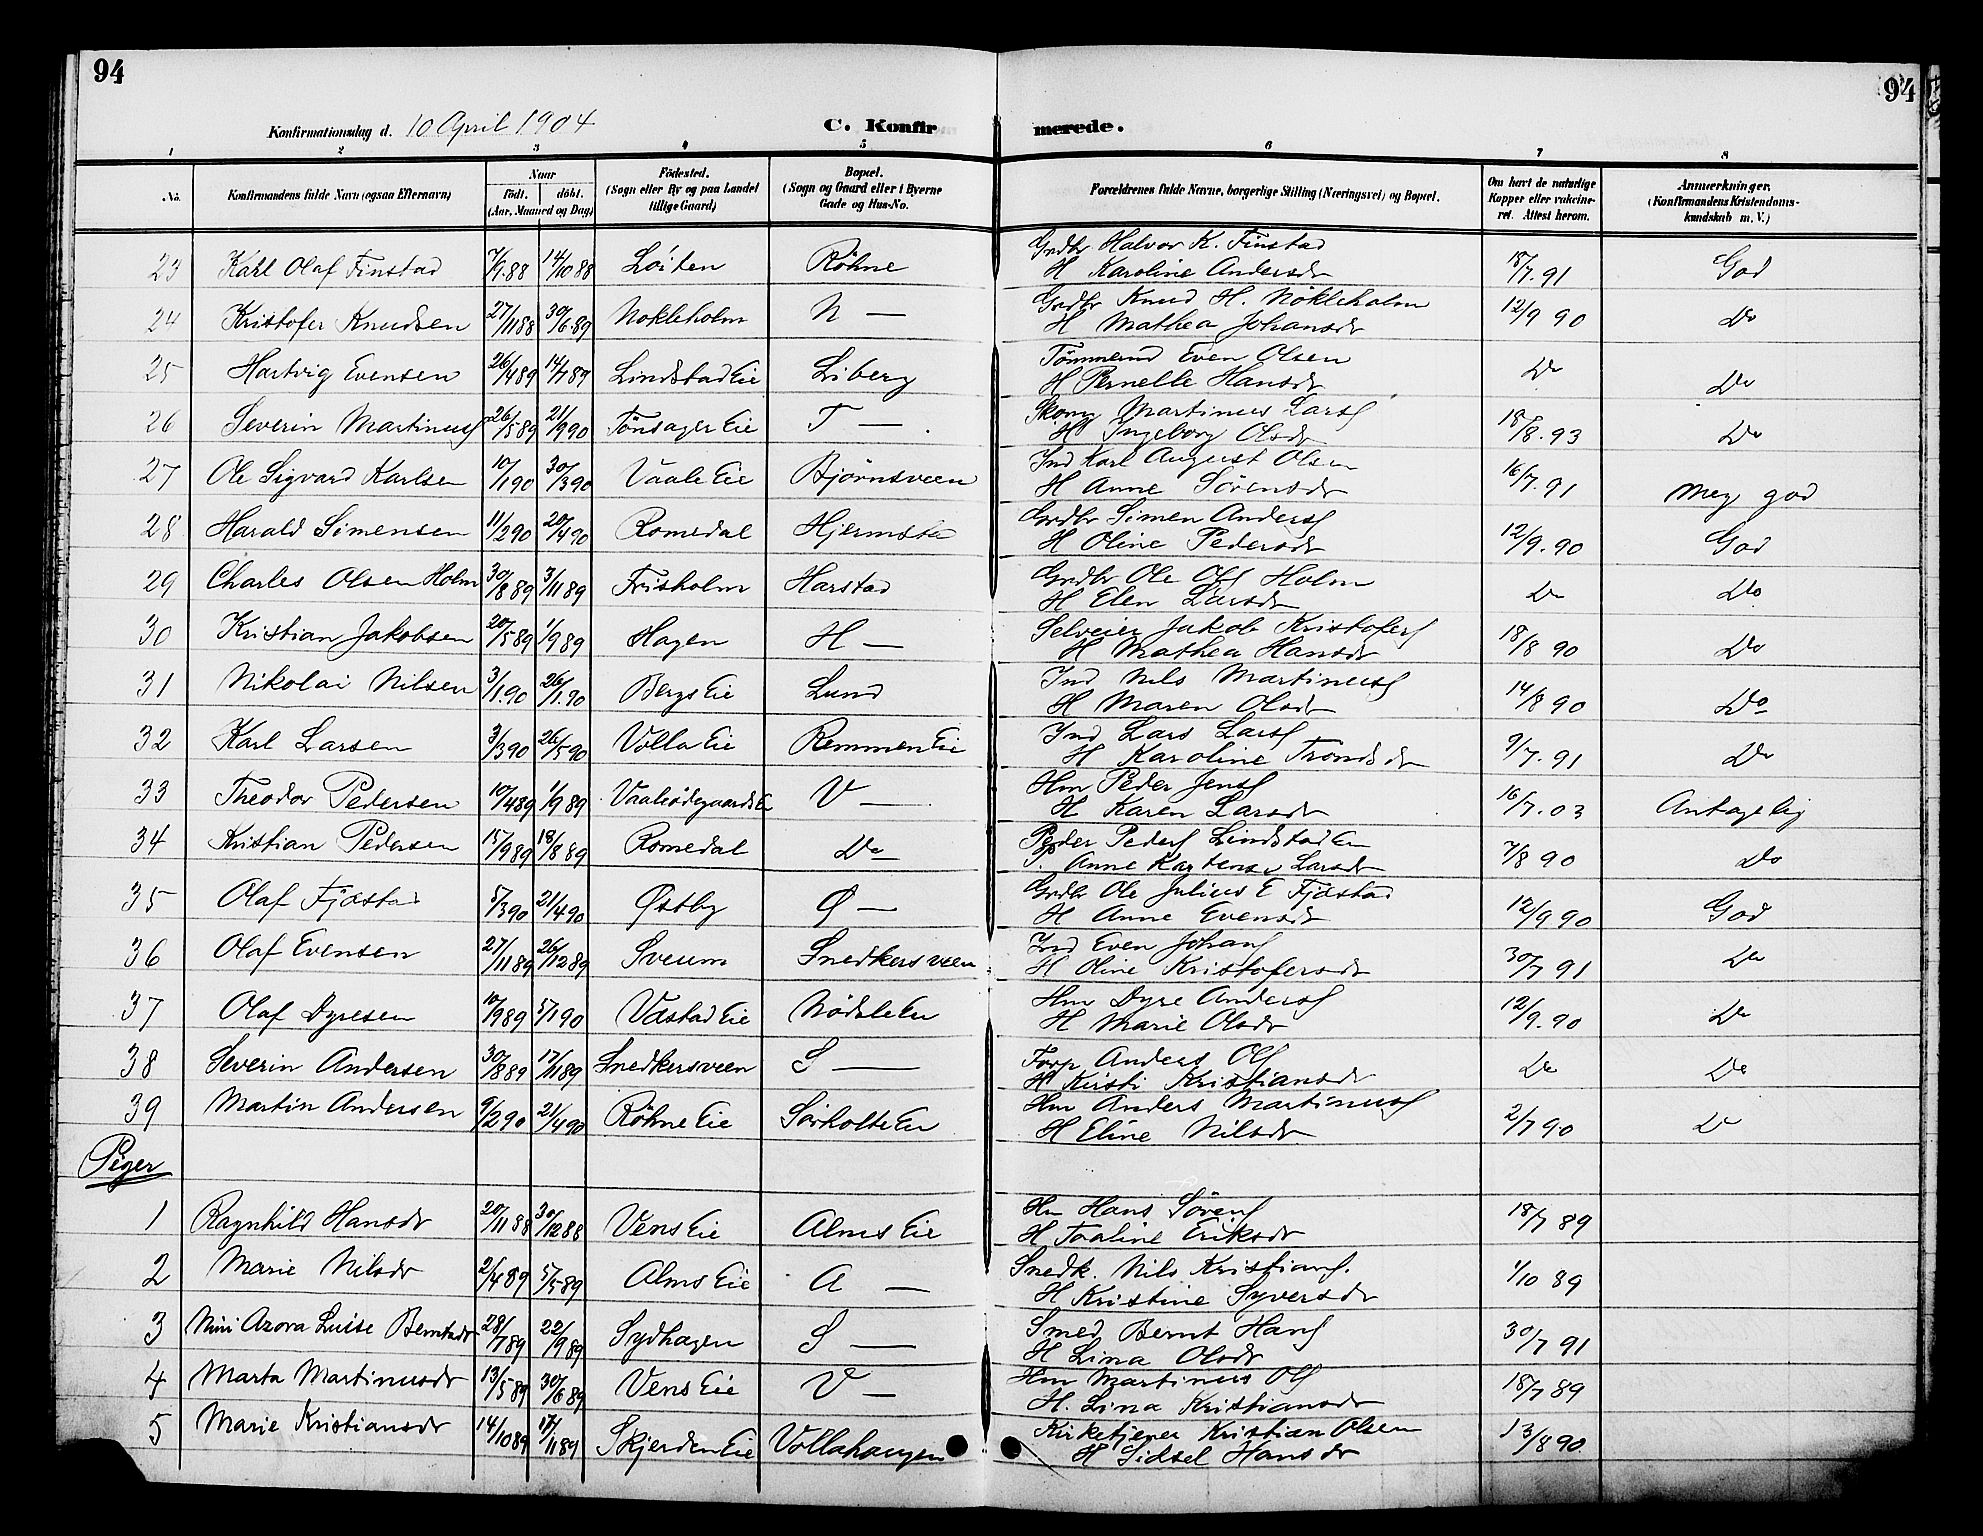 94
94
Konfirmationsdag d. 10 April 1904
C. Konfirmerede.
1 2 3 4 5 6 7 8
No. Konfirmandens fulde Navn (ogsaa Efternavn) Naar født. døbt. (Aar, Maaned og Dag) Fødested. (Sogn eller By og paa Landet tillige Gaard) Bopæl. (Sogn og Gaard eller i Byerne Gade og Hus-No. Forældrenes fulde Navne, borgerlige Stilling (Næringsvei) og Bopæl. Om havt de naturlige Kopper eller vaccineret. Attest herom. Anmærkninger. (Konfirmandens Kristendomskundskab m. V.)
23 Karl Olaf Finstad 7/9.88 14/10 88 Löiten Röhne Grdbr. Halvor K. Finstad 18/7.91 God
H Karoline Andersdr
24 Kristofer Knudsen 27/11 88 30/6.89 Nokleholm N — Grdbr Knud H. Nökleholm 12/9 90 Do
H Mathea Johansdr
25 Hartvig Evensen 26/4 89 14/7 89 Lindstad Eie Liberg Tömmermd Even Olsen Do Do
H Pernelle Hansdr
26 Severin Martinus 26/5 89 21/9 90 Tönsager Eie T — Skom Martinus Lars 18/8.93 Do
H Ingeborg Olsdr
27 Ole Sigvard Karlsen 10/1 90 30/3 90 Vaale Eie Bjørnsveen Ind Karl August Olsen 16/7.91 Meg god
H Anne Sörensdr
28 Harald Simensen 11/2 90 20/4 90 Romedal Hjermsta Grdbr Simen Anders 12/9.90 God
H Oline Pedersdr
29 Charles Olsen Holm 30/8 89 3/11 89 Frisholm Harstad Grdbr Ole Ols Holm Do Do
H Elen Larsdr
30 Kristian Jakobsen 20/5 89 1/9 89 Hagen H — Selveier Jakob Kristofers 18/8 90 Do
H Mathea Hansdr
31 Nikolai Nilsen 3/1.90 26/1.90 Bergs Eie Lund Ind Nils Martinus 14/8 90 Do
H Maren Olsdr
32 Karl Larsen 3/3 90 26/5 90 Volla Eie Remmen Eie Ind Lars Lars 9/7.91 Do
H Karoline Trondsdr
33 Theodor Pedersen 10/4 89 1/9 89 Vaaleödegaards E V — Hm Peder Jens 16/7.03 Antagelig
H Karen Larsdr
34 Kristian Pedersen 15/9 89 18/8 89 Romedal Do Peder Peders Lindstad 7/8 90 Do
P. Anne Larsdr
35 Olaf Fjæstad 5/3 90 21/4 90 Østby Ø — Grdbr Ole Julius E Fjæstad 12/9 90 God
H Anne Evensdr
36 Olaf Evensen 27/11 89 26/12 89 Sveum Snedkersveen Ind Even Johans 30/7 91 Do
H Oline Kristofersdr
37 Olaf Dyresen 10/9 89 5/1 90 Vastad Eie Nödsle Eie Hm Dyre Anders 12/9.90 Do
H Marie Olsdr
38 Severin Andersen 30/8 89 17/11 89 Snedkersveen S — Forp Anders Ols Do Do
H Kirsti Kristiansdr
39 Martin Andersen 9/2 90 21/4 90 Röhne Eie Sörholte Eie Hm Anders Martinus 2/7 90 Do
H Eline Nilsdr
Piger
1 Ragnhild Hansdr 20/11 88 30/12 88 Vens Eie Alms Eie Hm Hans Sörens 18/7 89
H Taaline Eriksdr
2 Marie Nilsdr 2/4 89 5/5 89 Alms Eie A — Snedk. Nils Kristians. 1/10 89
H Kristine Syversdr
3 Mini Azora Luise Berntsdr 28/7 89 22/9 89 Sydhagen S — Smed Bernt Hans 30/7 91
H Lina Olsdr
4 Marta Martinusdr 13/5 89 30/6 89 Vens Eie V — Hm Martinus Ols 18/7 89
H. Lina Kristiansdr
5 Marie Kristiansdr 14/10 89 17/11 89 Skjerden Eie Vollahaugen Kirketjener Kristian Olsen 13/8 90
H Sidsel Hansdr